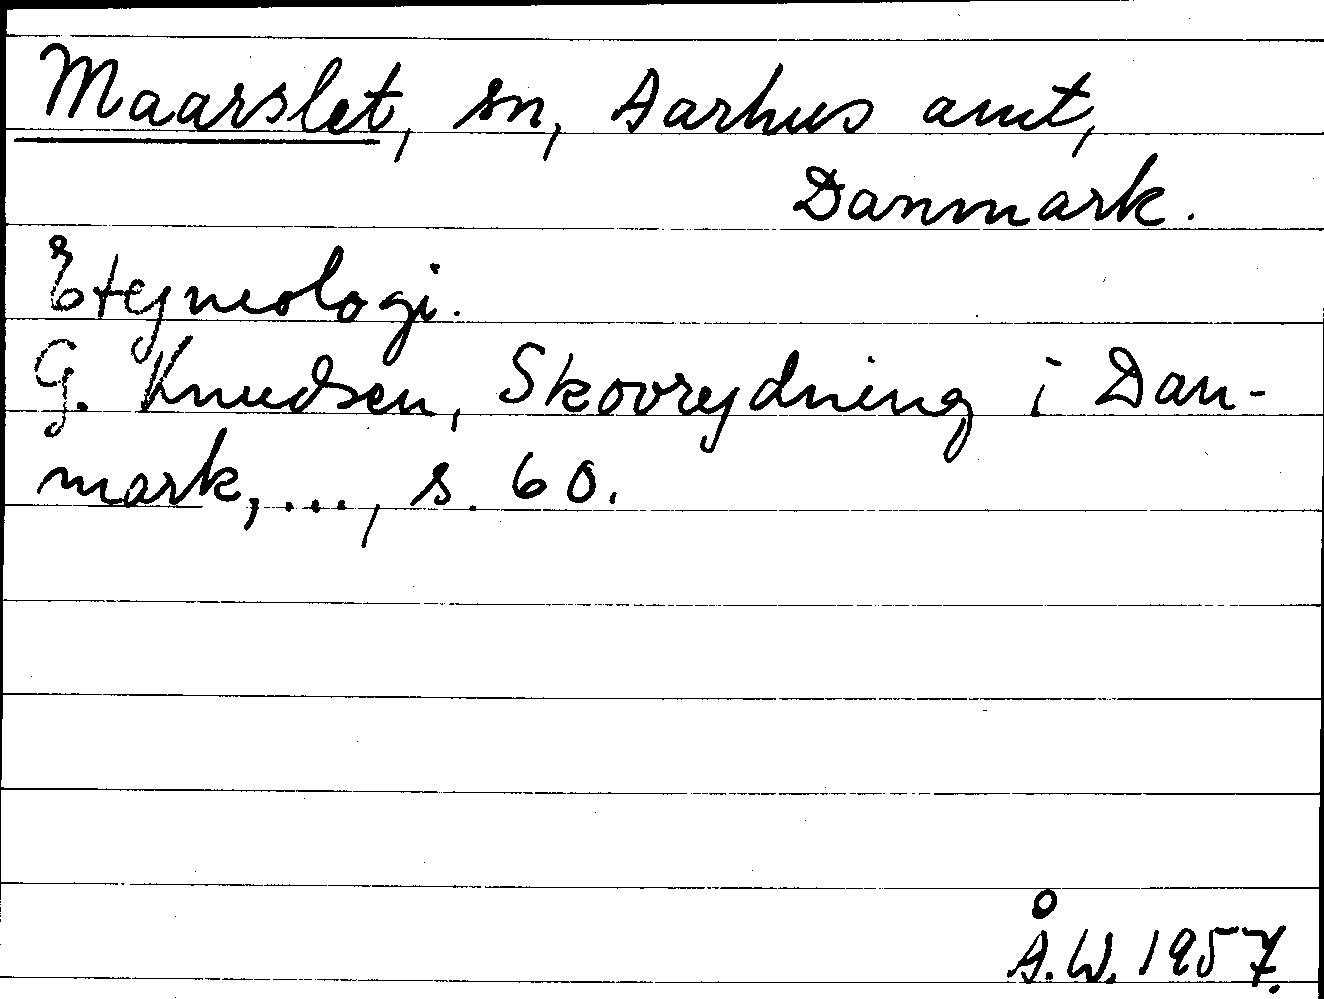 Maarslet, sn, Aarhus amt,
Danmark.
Etymologi.
G. Knudsen, Skovrydning i Dan-
mark, ..., s. 60.
Å.W. 1957.